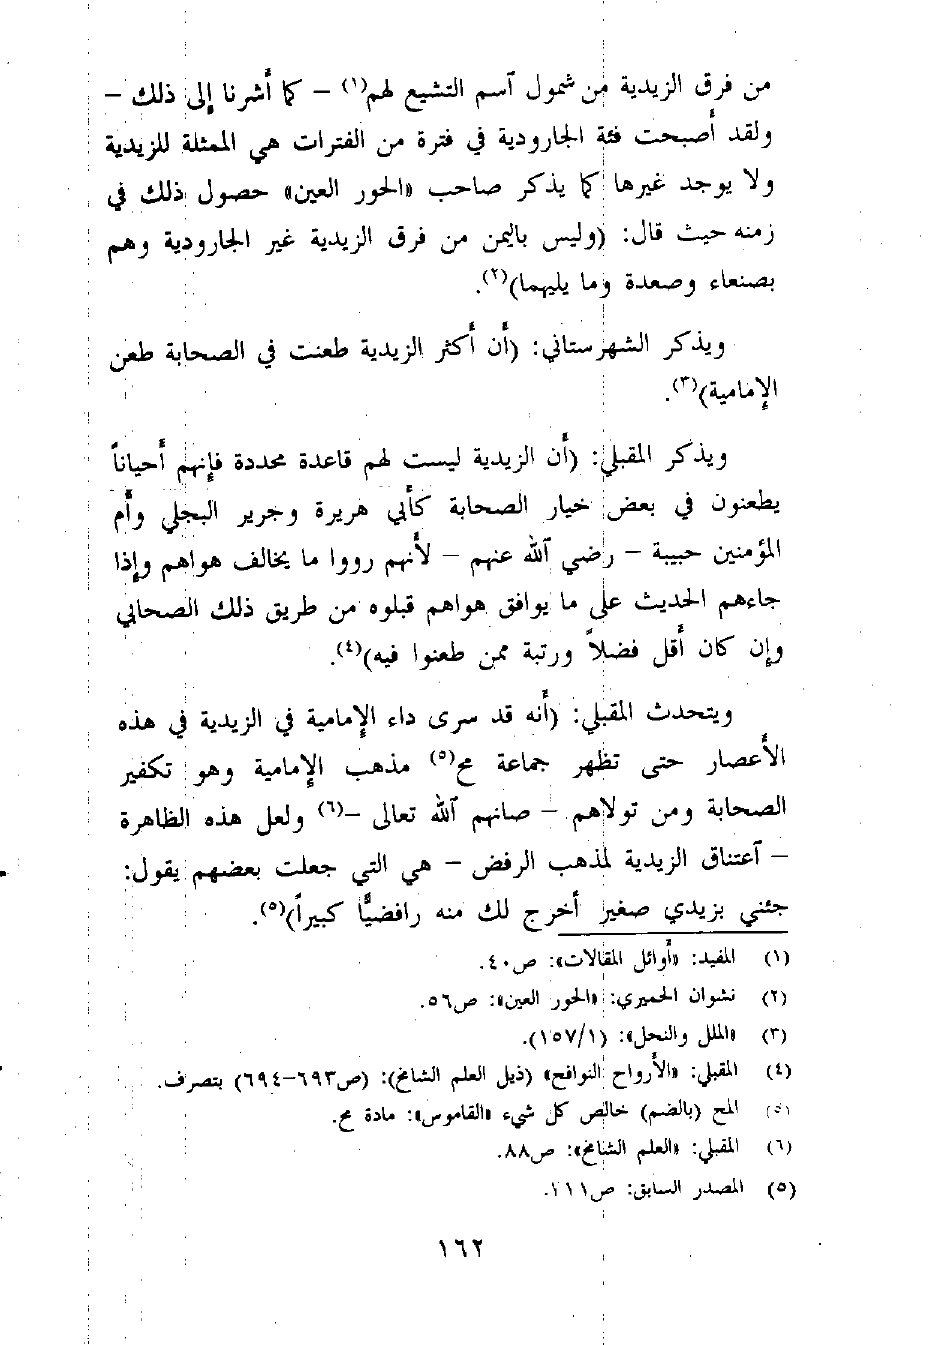 من فرق الزيدية من شمول آسم التشيع لهم(١) – كما أشرنا إلى ذلك –
ولقد أصبحت فئة الجارودية في فترة من الفترات هي الممثلة للزيدية
ولا يوجد غيرها كما يذكر صاحب «الحور العين» حصول ذلك في
زمنه حيث قال: (وليس باليمن من فرق الزيدية غير الجارودية وهم
بصنعاء وصعدة وما يليهما)(٢).
ويذكر الشهرستاني: (أن أكثر الزيدية طعنت في الصحابة طعن
الإمامية)(٣).
ويذكر المقبلي: (أن الزيدية ليست لهم قاعدة محددة فإنهم أحياناً
يطعنون في بعض خيار الصحابة كأبي هريرة وجرير البجلي وأم
المؤمنين حبيبة – رضي آلله عنهم – لأنهم رووا ما يخالف هواهم وإذا
جاءهم الحديث على ما يوافق هواهم قبلوه من طريق ذلك الصحابي
وإن كان أقل فضلاً ورتبة ممن طعنوا فيه)(٤).
ويتحدث المقبلي: (أنه قد سرى داء الإمامية في الزيدية في هذه
الأعصار حتى تظهر جماعة مح(٥) مذهب الإمامية وهو تكفير
الصحابة ومن تولاهم – صانهم آلله تعالى –(٦) ولعل هذه الظاهرة
– آعتناق الزيدية لمذهب الرفض – هي التي جعلت بعضهم يقول:
جئني بزيدي صغير أخرج لك منه رافضيًّا كبيراً)(٥).
(١) المفيد: «أوائل المقالات»: ص٤٠.
(٢) نشوان الحميري: «الحور العين»: ص٥٦.
(٣) «الملل والنحل»: (١/١٥٧).
(٤) المقبلي: «الأرواح النوافح» (ذيل العلم الشامخ): (ص٦٩٣–٦٩٤) بتصرف.
(٥) المح (بالضم) خالص كل شيء «القاموس»: مادة مح.
(٦) المقبلي: «العلم الشامخ»: ص٨٨.
(٥) المصدر السابق: ص١١١.
١٦٢